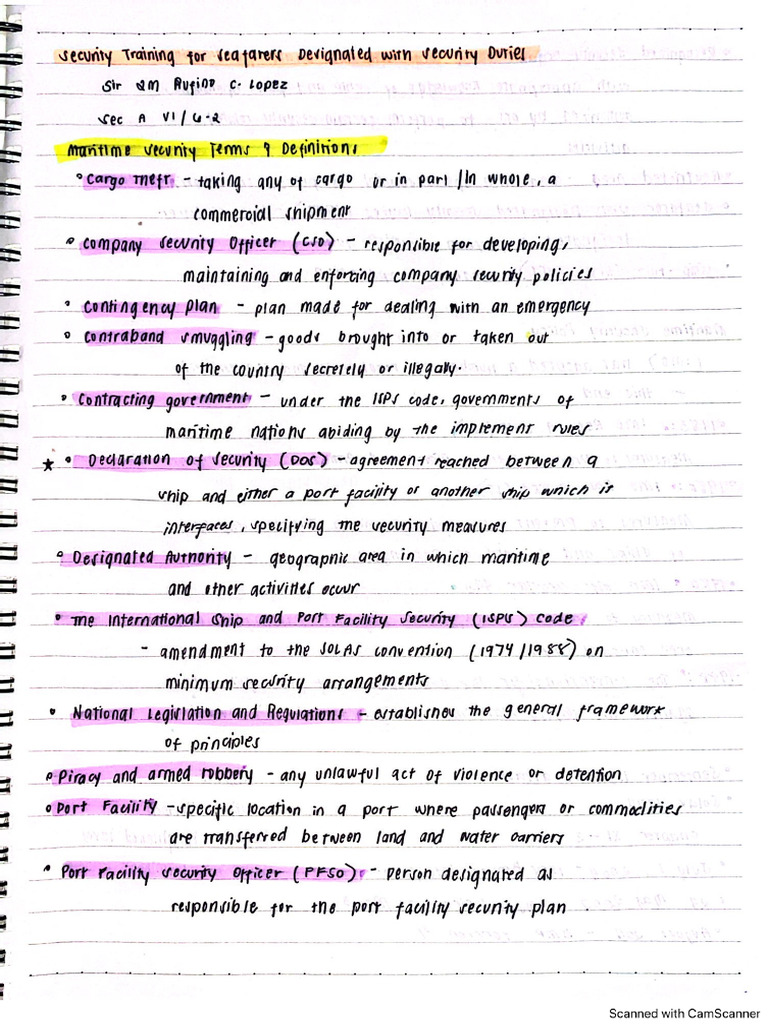 Security Training for Seafarers Designated with Security Duties
Sir 2M Rufino C. Lopez
Sec A VI/6-2
Maritime Security Terms & Definitions
• Cargo Theft - taking any of cargo or in part /In whole, a
commercial shipment
• Company Security Officer (CSO) - responsible for developing,
maintaining and enforcing company security policies
• Contingency plan - plan made for dealing with an emergency
• Contraband smuggling - goods brought into or taken out
of the country secretely or illegally.
• Contracting government - under the ISPS code, governments of
maritime nations abiding by the implement rules
★ • Declaration of Security (DOS) - agreement reached between a
ship and either a port facility or another ship which is
interfaces, specifying the security measures
• Designated Authority - geographic area in which maritime
and other activities occur
• The International Ship and Port Facility Security (ISPS) Code
- amendment to the SOLAS convention (1974/1988) on
minimum security arrangements
• National Legislation and Regulations - establishes the general framework
of principles
• Piracy and armed robbery - any unlawful act of violence or detention
• Port Facility - specific location in a port where passengers or commodities
are transferred between land and water carriers
• Port Facility Security Officer (PFSO) - person designated as
responsible for the port facility security plan.
Scanned with CamScanner